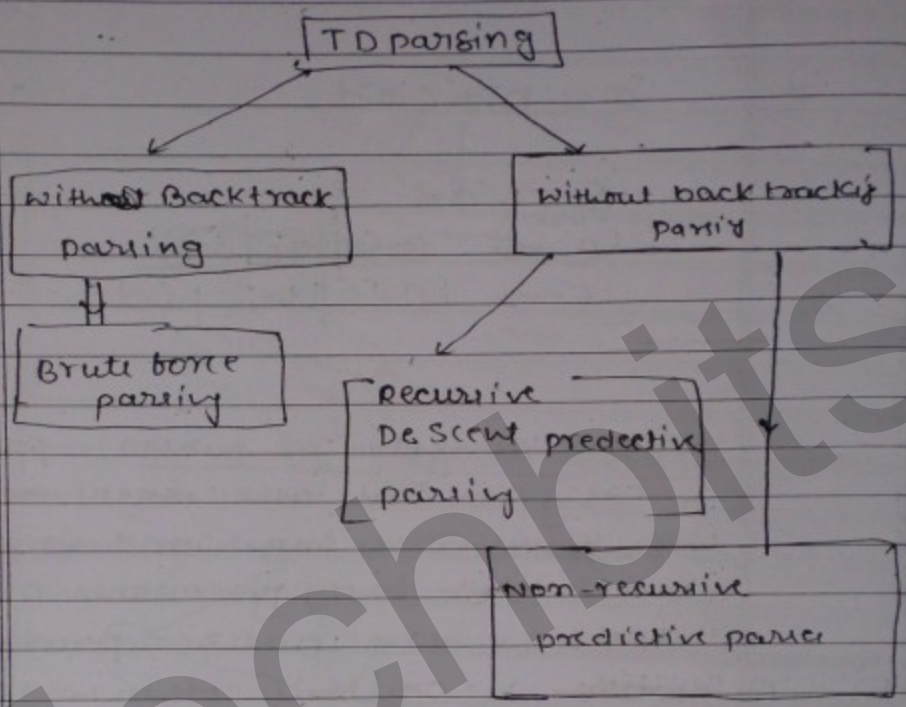 TD parsing
with Backtrack
parsing
without backtrackig
parsig
Brute force
parsing
Recursive
DeScent predective
parsing
Non-recursive
predictive parser
techbits